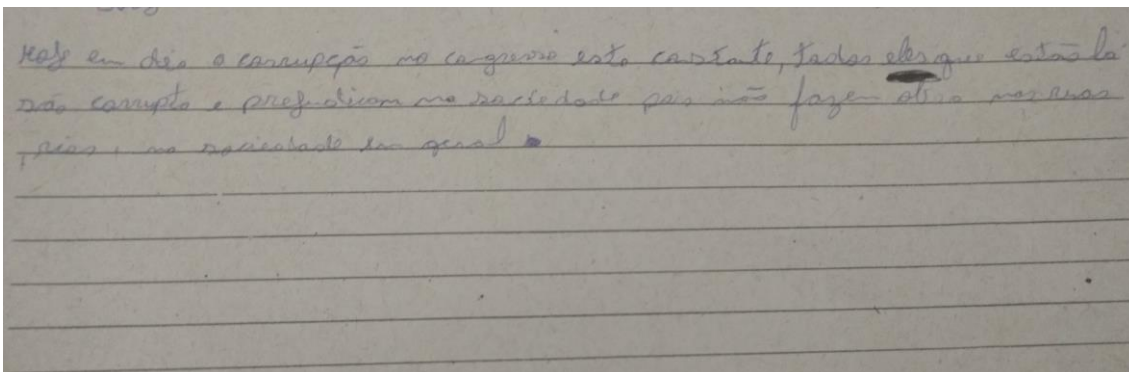 Hoje em dia a corrupção no congresso esta constante, todos eles que estão lá
são corrupto e prejudicam na sociedade pois não fazem obra nas ruas
, rios, na sociedade em geral.